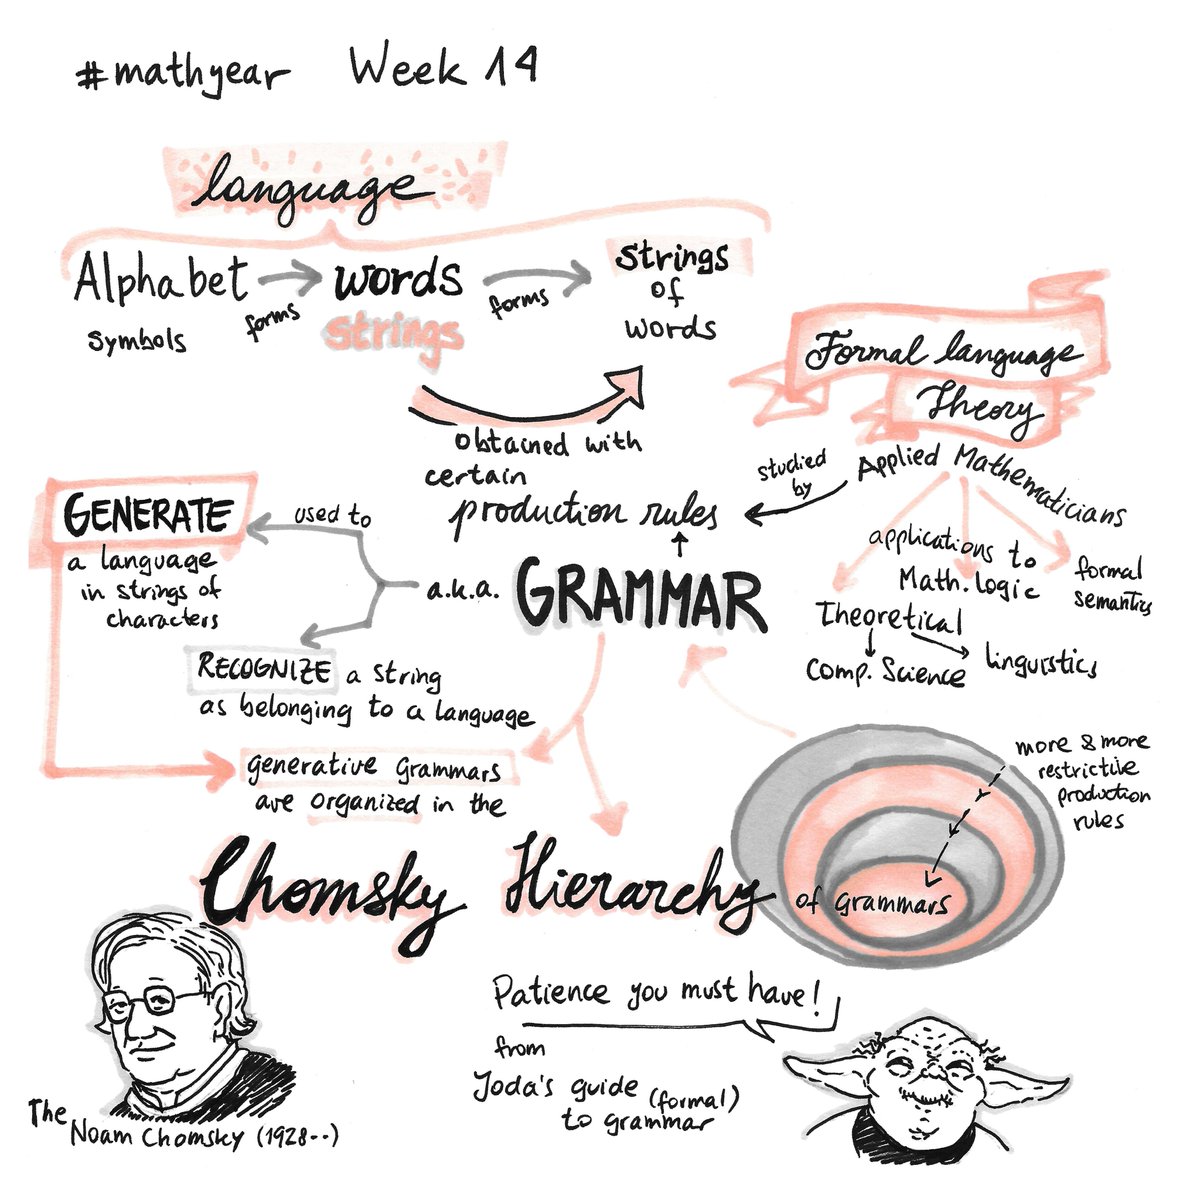 #mathyear Week 14
language
Alphabet
symbols
forms
words
strings
forms
strings
of
words
obtained with
certain
production rules
Formal language
Theory
Applied Mathematicians
studied
by
applications to
Math. logic
formal
semantics
Theoretical
Comp. Science
linguistics
a.k.a. GRAMMAR
used to
GENERATE
a language
in strings of
characters
RECOGNIZE a string
as belonging to a language
generative grammars
are organized in the
Chomsky Hierarchy of grammars
more & more
restrictive
production
rules
The
Noam Chomsky (1928--)
Patience you must have!
from
Joda's guide (formal)
to grammar